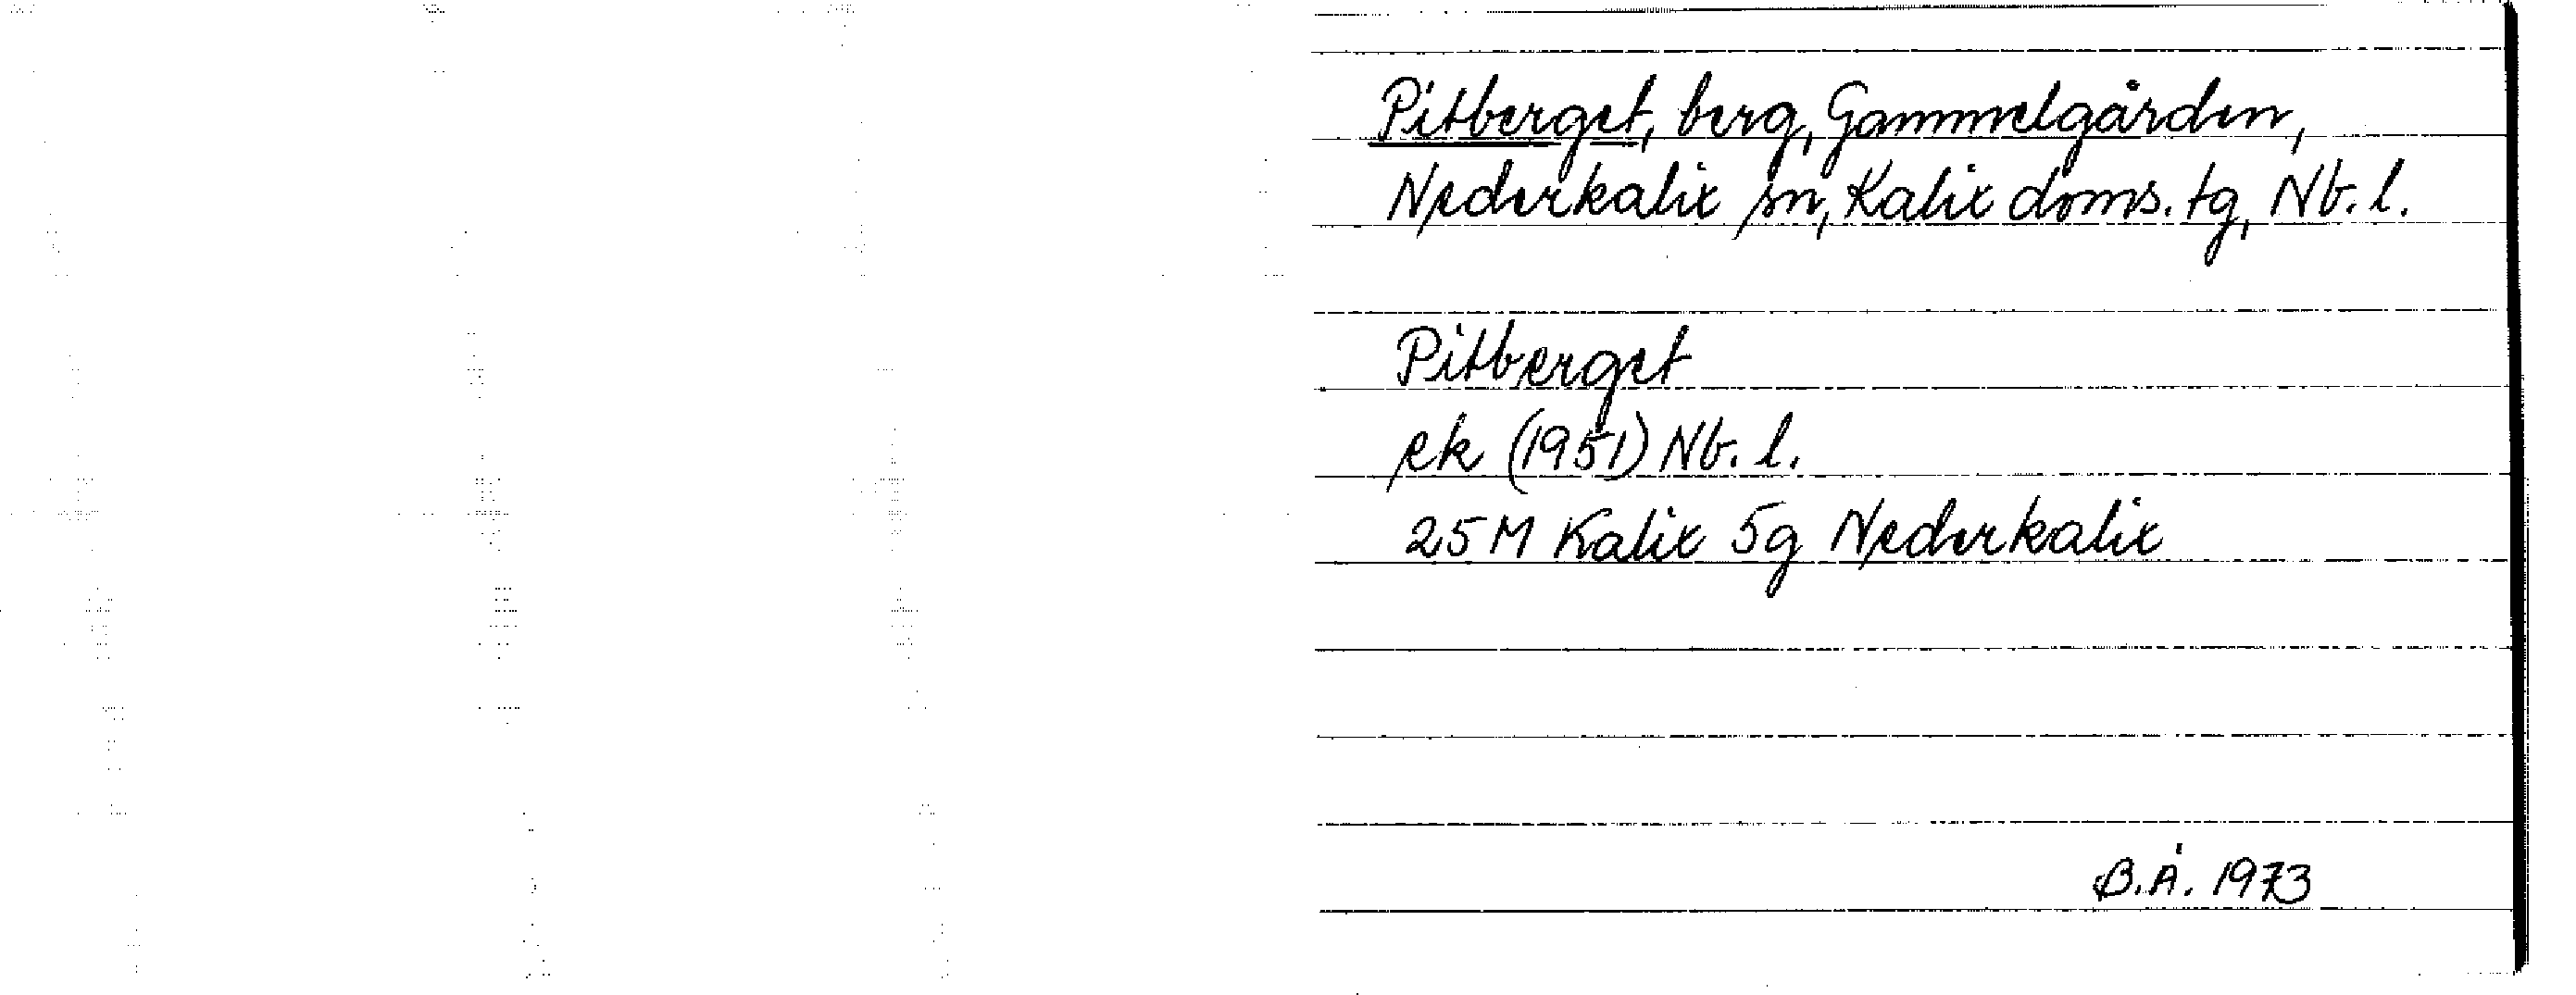 Pitberget, berg, Gammelgården,
Nederkalix sn, Kalix doms. tg, Nb. l.
Pitberget
ek (1951) Nb. l.
25M Kalix 5g Nederkalix
B.Å. 1973